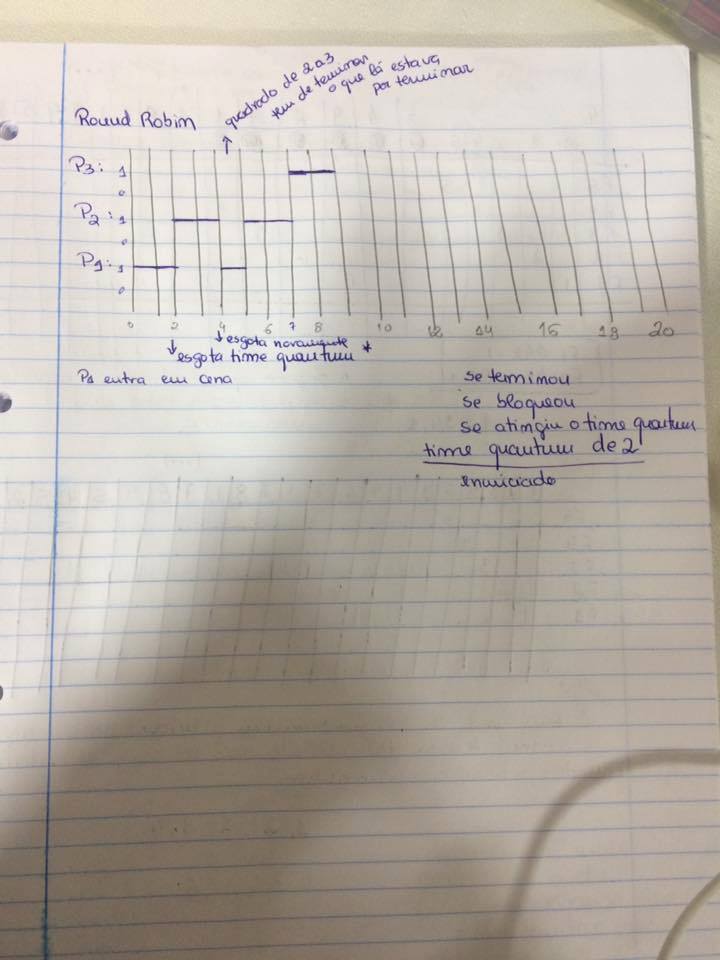 quadrado de 2 a 3
tem de terminar
o que lá estava
por terminar
Round Robim
P3: 1
0
P2: 1
0
P1: 1
0
0 2 4 6 7 8 10 12 14 16 18 20
esgota novamente
esgota time quantum *
P1 entra em cena
se terminou
se bloqueou
se atingiu o time quantum
time quantum de 2
enunciado